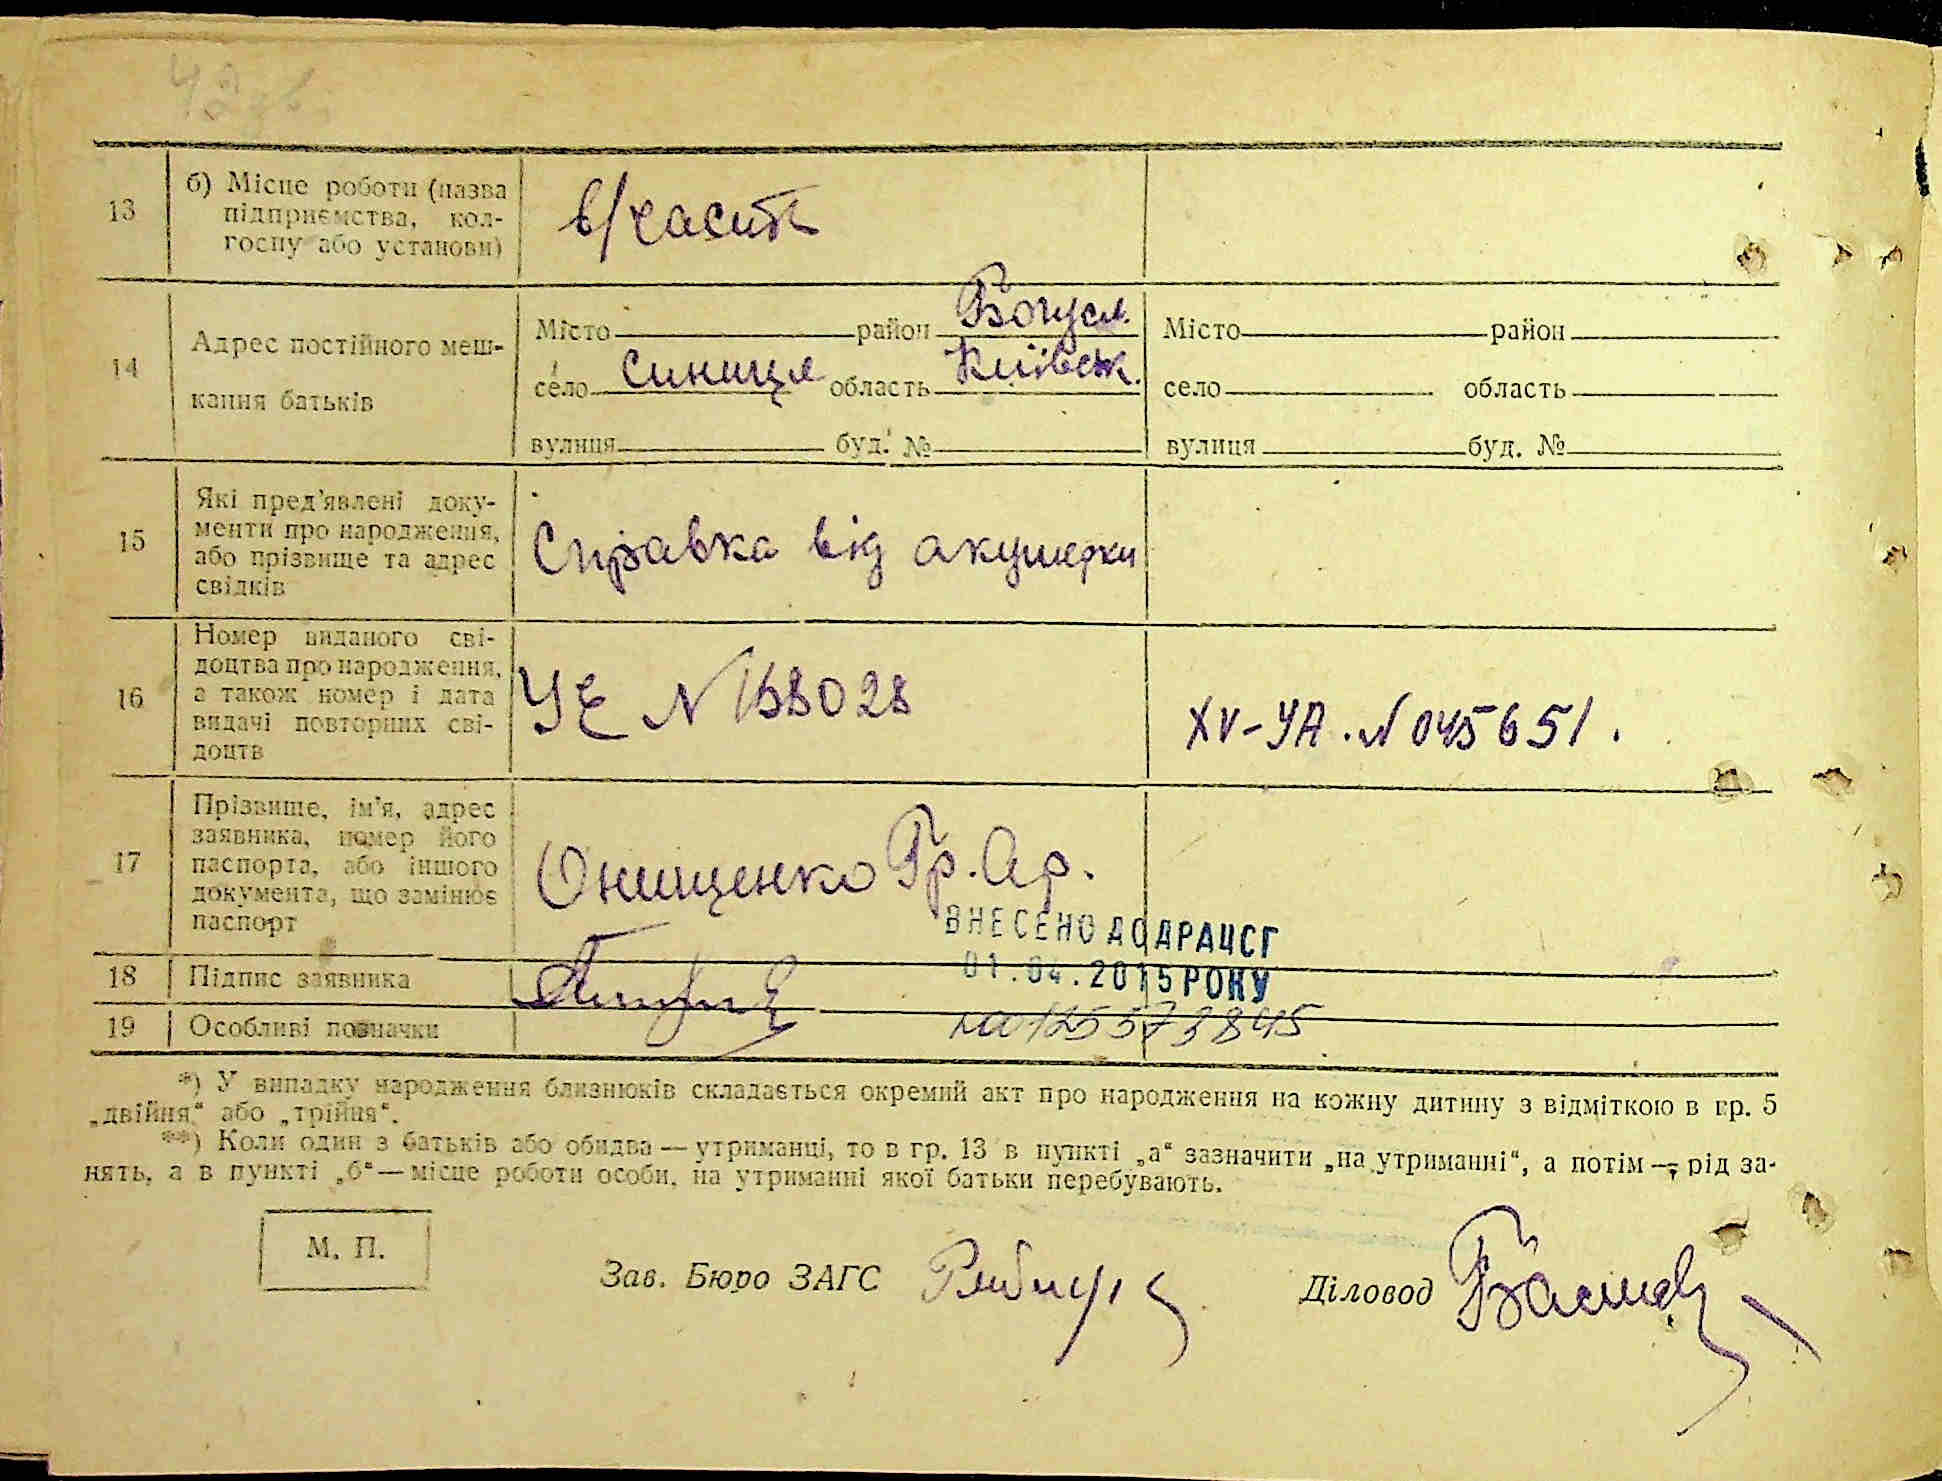 42 зв.
13
б) Місце роботи (назва
підприємства, кол-
госпу або установи)
14
Адрес постійного меш-
кання батьків
Місто район Богусл.
село Синиця область Київськ.
вулиця буд. №
Місто район
село область
вулиця буд. №
15
Які пред'явлені доку-
менти про народження,
або прізвище та адрес
свідків
Справка від акушерки
16
Номер виданого сві-
доцтва про народження,
а також номер і дата
видачі повторних сві-
доцтв
УЕ N 158028
XV-УА. N 045651.
17
Прізвище, ім'я, адрес
заявника, номер його
паспорта, або іншого
документа, що замінює
паспорт
Онищенко Гр. Ар.
ВНЕСЕНО ДО ДРАЦСГ
01.04.2015 РОКУ
18 Підпис заявника
19 Особливі позначки
*) У випадку народження близнюків складається окремий акт про народження на кожну дитину з відміткою в гр. 5
„двійня“ або „трійня“.
**) Коли один з батьків або обидва — утриманці, то в гр. 13 в пункті „а“ зазначити „на утриманні“, а потім — рід за-
нять, а в пункті „б“ — місце роботи особи, на утриманні якої батьки перебувають.
М. П.
Зав. Бюро ЗАГС
Діловод